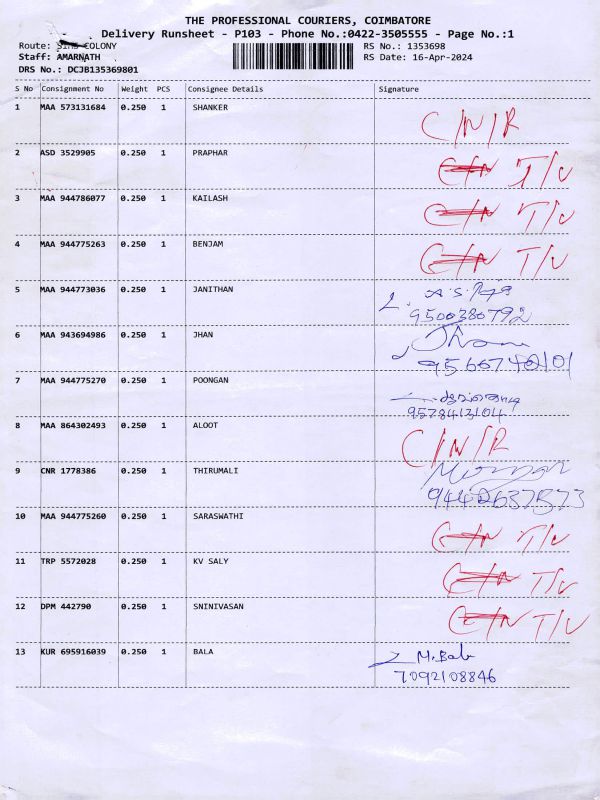 THE PROFESSIONAL COURIERS, COIMBATORE
Delivery Runsheet - P103 - Phone No.:0422-3505555 - Page No.:1
Route: COLONY
RS No.: 1353698
Staff: AMARNATH
RS Date: 16-Apr-2024
DRS No.: DCJB135369801
S No Consignment No Weight PCS Consignee Details Signature
1 MAA 573131684 0.250 1 SHANKER C/N/R
2 ASD 3529905 0.250 1 PRAPHAR T/V
3 MAA 944786077 0.250 1 KAILASH T/V
4 MAA 944775263 0.250 1 BENJAM T/V
5 MAA 944773036 0.250 1 JANITHAN
9500380792
6 MAA 943694986 0.250 1 JHAN
7 MAA 944775270 0.250 1 POONGAN
9578413104
8 MAA 864302493 0.250 1 ALOOT C/N/R
9 CNR 1778386 0.250 1 THIRUMALI
10 MAA 944775260 0.250 1 SARASWATHI T/V
11 TRP 5572028 0.250 1 KV SALY T/V
12 DPM 442790 0.250 1 SNINIVASAN T/V
13 KUR 695916039 0.250 1 BALA M.Bab
7092108846